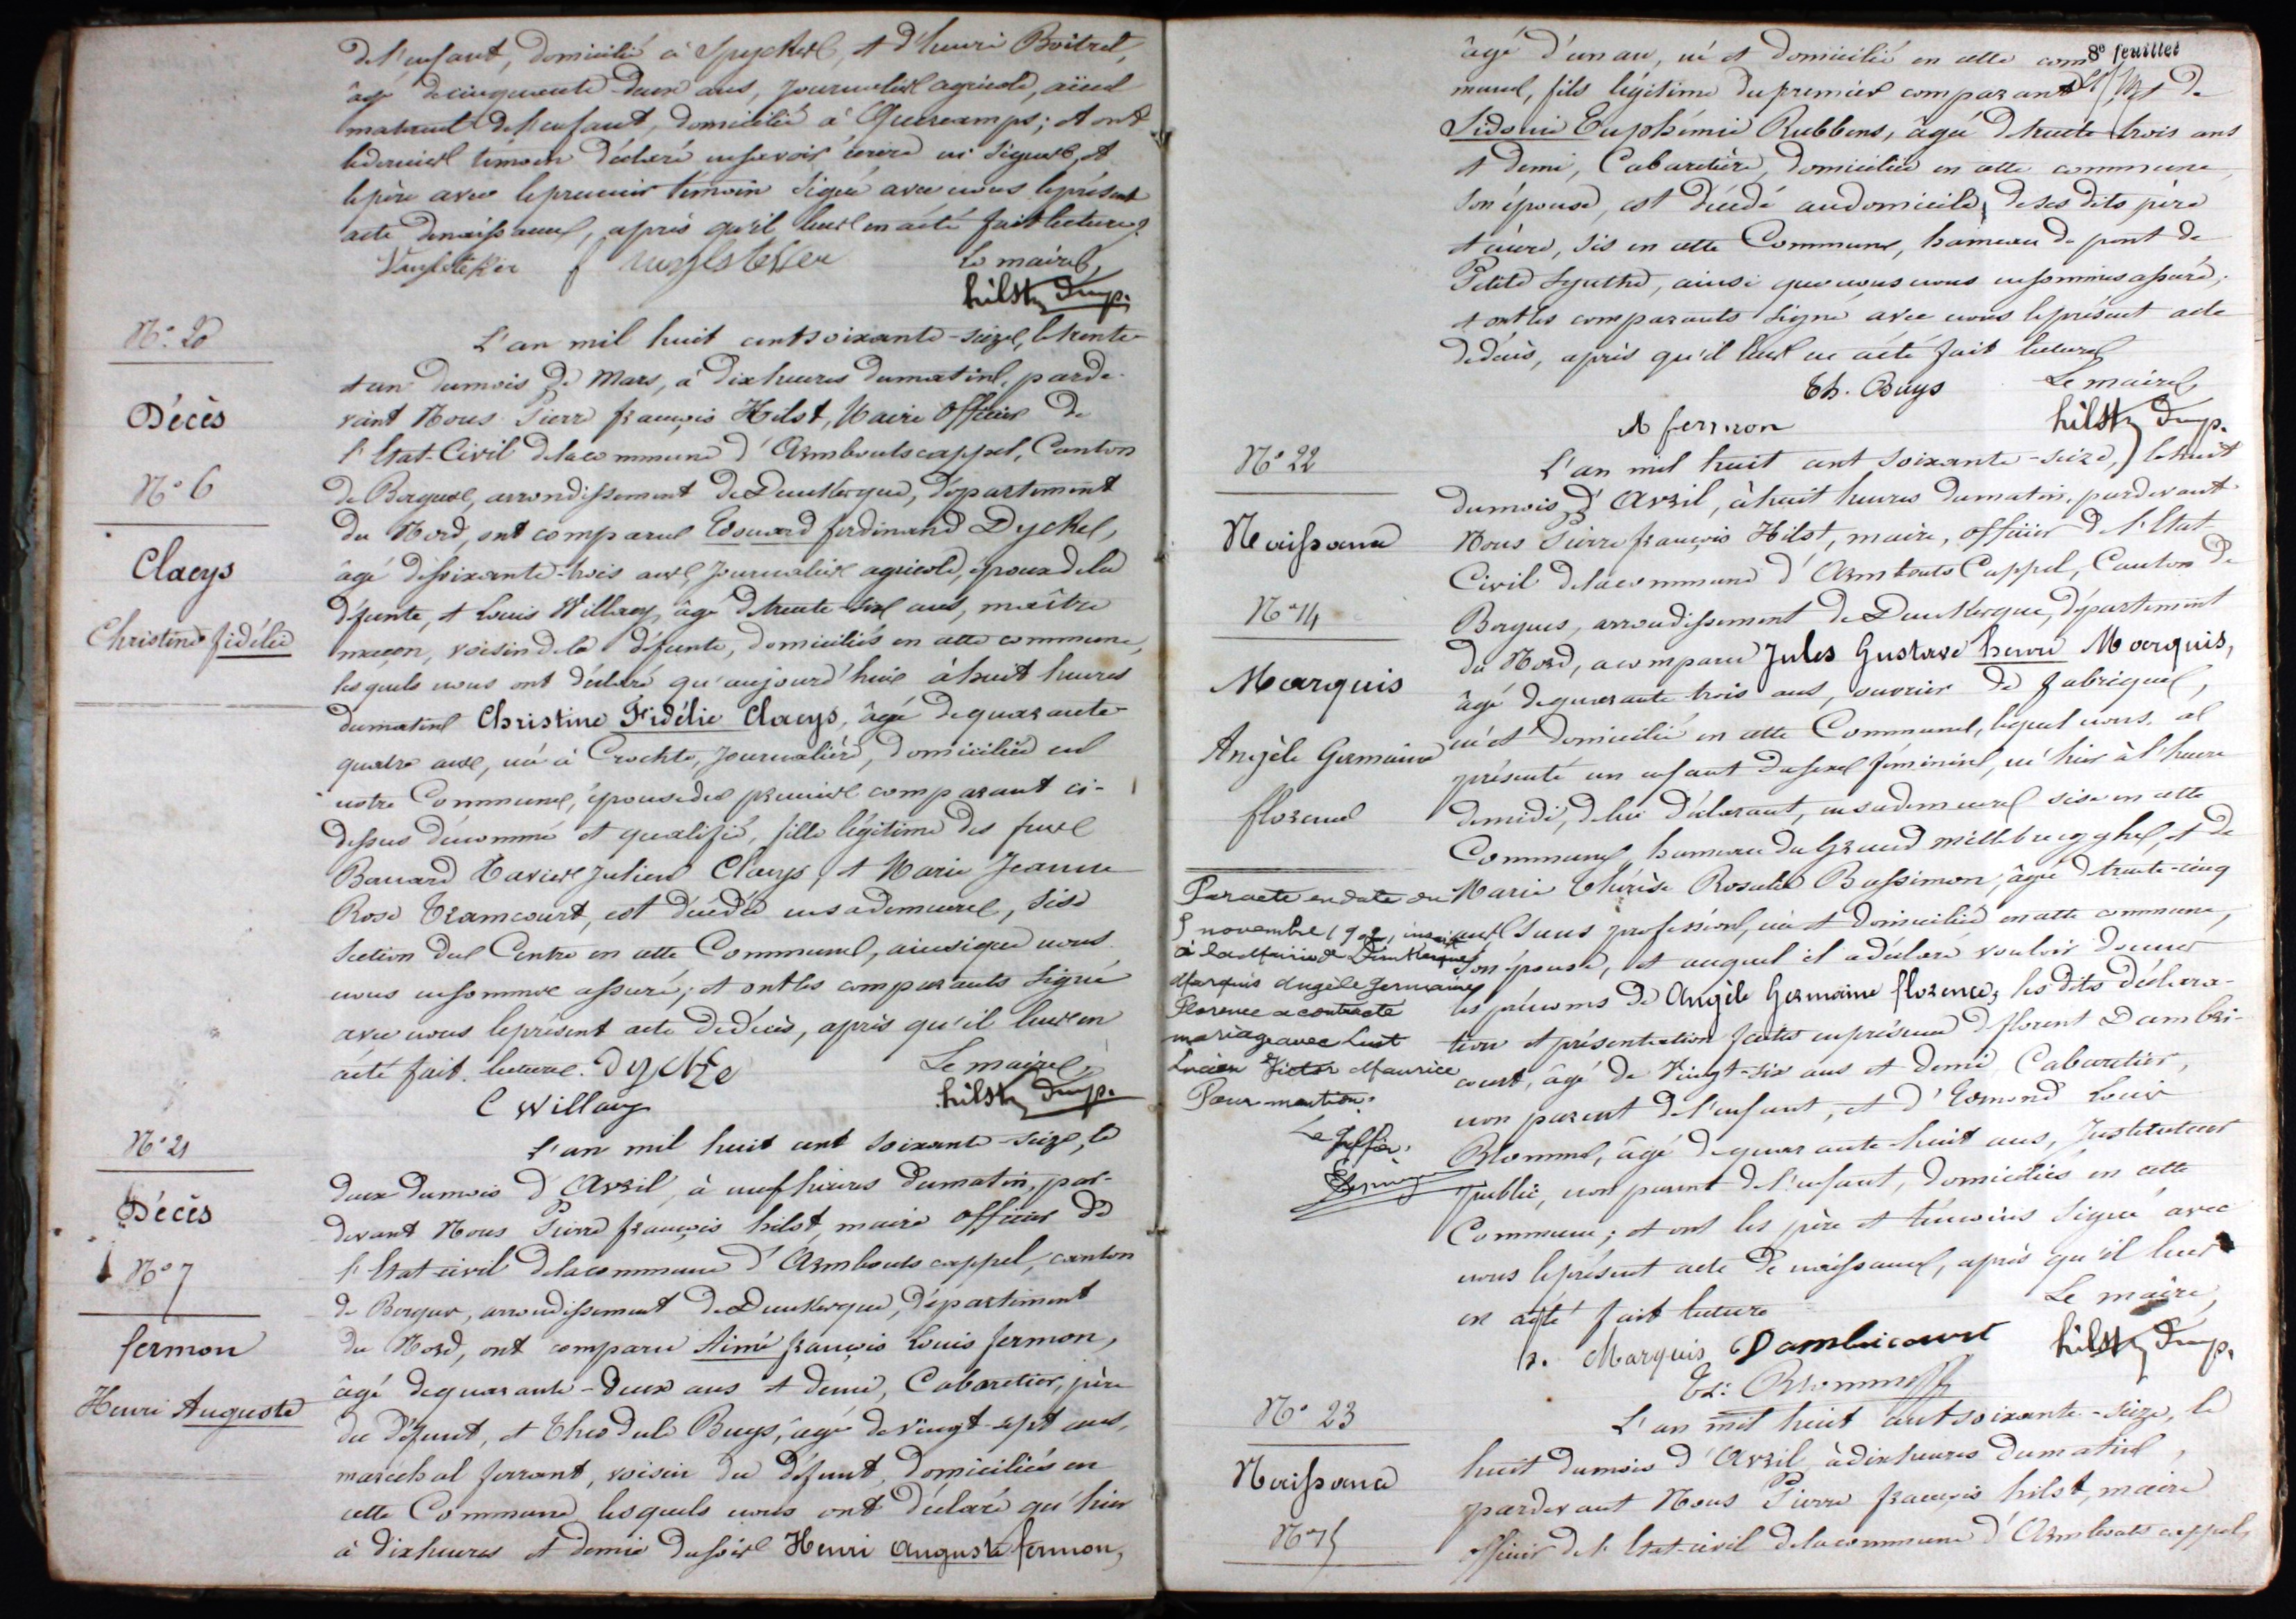 de l'enfant, domicilié à Spycker, et d'henri Boitrel,
âgé de cinquante-deux ans, journalier agricole, aïeul
maternel de l'enfant, domicilié à ; et ont
le dernier témoin déclaré ne savoir écrire ni signer, et
le père avec le premier témoin signé avec nous le présent
acte de naissance, après qu'il leur en a été fait lecture.
Le maire,
hilst
N° 20
Décès
N° 6
Claeys
Christine fidélie
L'an mil huit cent soixante-seize, le trente
et un du mois de Mars, à dix heures du matin, parde-
vant Nous Pierre françois Hilst, Maire Officier de
l'Etat-Civil de la commune d'Armboutscappel, Canton
de Bergues, arrondissement de Dunkerque, département
du Nord, ont comparu Edouard ferdinand Dycke,
âgé de soixante-trois ans, journalier agricole, époux de la
défunte, et Louis Willaey, âgé de trente-six ans, maître
maçon, voisin de la défunte, domiciliés en cette commune,
lesquels nous ont déclaré qu'aujourd'hui à huit heures
du matin Christine Fidélie Claeys, âgée de quarante-
quatre ans, née à Crochte, journalière, domiciliée en
notre Commune, épouse du premier comparant ci-
dessus dénommé et qualifié, fille légitime des feus
Xavier Julien Claeys, et Marie Jeanne
Rose Tramcourt, est décédée en sa demeure, sise
section du Centre en cette Commune, ainsi que nous
nous en sommes assuré; et ont les comparants signé
avec nous le présent acte de décès, après qu'il leur en
a été fait lecture. Dycke
Le maire,
L Willaey
hilst
N° 21
Décès
N° 7
fermon
Henri Auguste
L'an mil huit cent soixante-seize, le
deux du mois d'Avril, à neuf heures du matin, par-
devant Nous Pierre françois hilst, maire officier de
l'Etat-civil de la commune d'Armboutscappel, canton
de Bergues, arrondissement de Dunkerque, département
du Nord, ont comparu Aimé françois Louis fermon,
âgé de quarante-deux ans et demi, Cabaretier, père
du défunt, et Théodule Buys, âgé de vingt-sept ans,
maréchal ferrant, voisin du défunt, domiciliés en
cette Commune lesquels nous ont déclaré qu'hier
à dix heures et demie du soir Henri Auguste fermon,
8e feuillet
âgé d'un an, né et domicilié en cette com-
mune, fils légitime du premier comparant et de
Sidonie Euphémie Rubbens, âgée de trente trois ans
et demi, Cabaretière, domiciliée en cette commune
son épouse, est décédé au domicile, de ses dits père
et mère, sis en cette Commune, hameau du pont de
Petite Synthe, ainsi que nous nous en sommes assuré;
et ont les comparants signé avec nous le présent acte
de décès, après qu'il leur en a été fait lecture
Th. Buys
Le maire
A fermon
hilst
N° 22
Naissance
N° 14
Marquis
Angèle Germaine
florence
L'an mil huit cent soixante-seize, le huit
du mois d'Avril, à huit heures du matin, pardevant
Nous Pierre françois Hilst, maire, officier de l'Etat
Civil de la commune d'Armbouts Cappel, Canton de
Bergues, arrondissement de Dunkerque, département
du Nord, a comparu Jules Gustave henri Marquis,
âgé de quarante trois ans, ouvrier de fabrique,
né et domicilié en cette Commune, lequel nous a
présenté un enfant du sexe féminin, né hier à l'heure
de midi, de lui déclarant, en sa demeure sise en cette
Commune, hameau du Grand millebrugghe, et de
Marie Thérèse Rosalie Bassimon, âgée de trente-cinq
ans sans profession, née et domiciliée en cette commune,
son épouse, et auquel il a déclaré vouloir donner
les prénoms de Angèle Germaine florence, les dits déclara-
tion et présentation faites en présence de florent Dambri-
court, âgé de vingt-six ans et demi, Cabaretier,
non parent de l'enfant, et d'Edmond Louis
Blomme, âgé de quarante-huit ans, Instituteur
public, non parent de l'enfant, domiciliés en cette
Commune; et ont les père et témoins signé avec
nous le présent acte de naissance, après qu'il leur
en a été fait lecture
Le maire,
h. Marquis Dambricourt
hilst
Ed: Blomme
Par acte en date du
5 novembre inscrit
à la Mairie de Dunkerque
Marquis Angèle Germaine
Florence a contracté
mariage avec Lust
Lucien Victor Maurice
Pour mention.
Le Greffier.
N° 23
Naissance
N° 15
L'an mil huit cent soixante-seize, le
huit du mois d'Avril, à dix heures du matin,
pardevant Nous Pierre françois hilst, maire
officier de l'Etat-civil de la commune d'Armboutscappel,